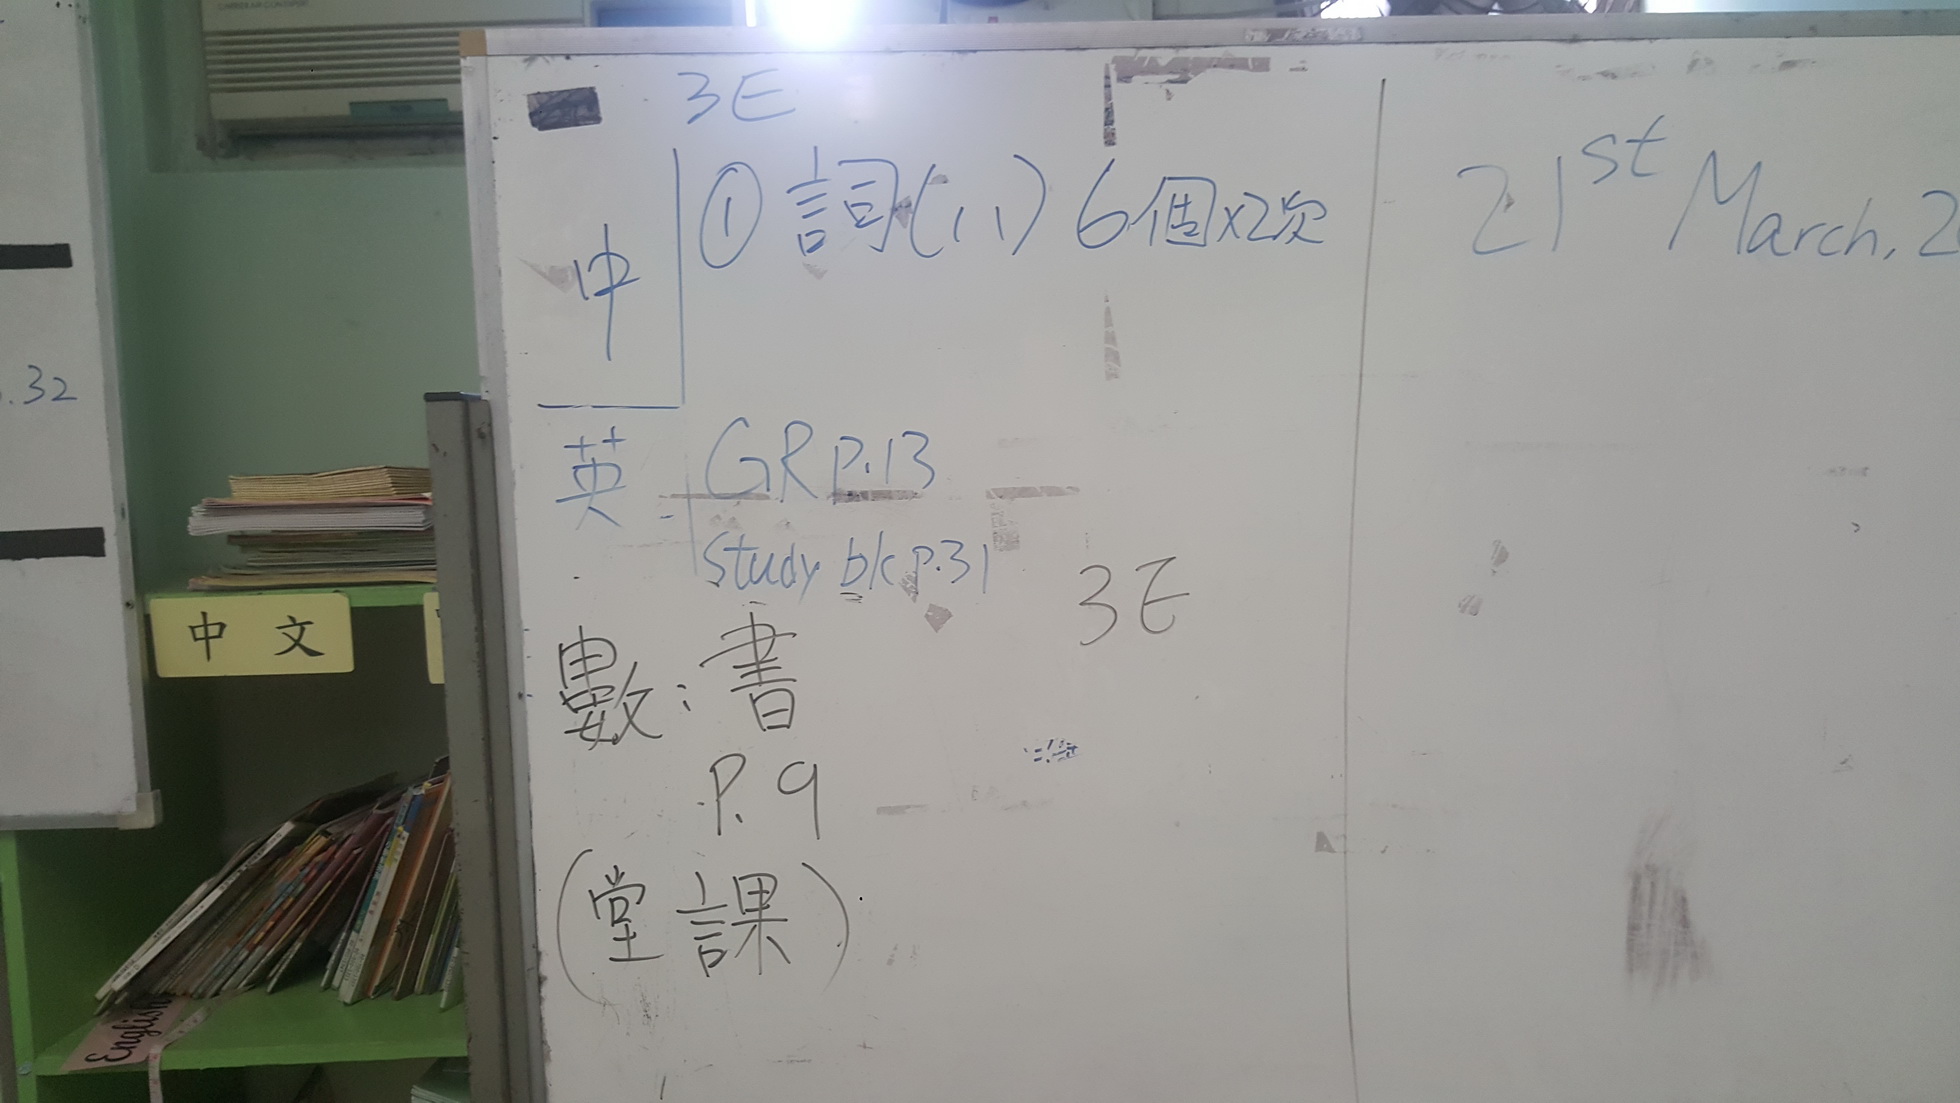 3E
中 ① 詞(八) 6個x2次
英 GR P.13
Study bk p.31
數: 書
P. 9
(堂課)
3E
21st March, 2
.32
中文
English